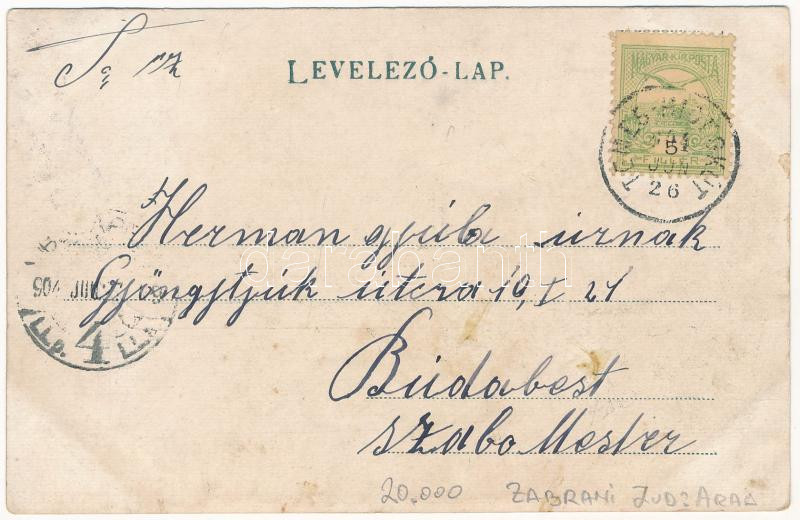 LEVELEZŐ-LAP.
MAGYAR KIR. POSTA
5
FILLÉR
JUN
26
905
4
Herman gyúla úrnak
Gyöngytjúk útcza 19, I 21
Búdabest
szabo Mester
darabanth
20.000 ZABRANI JUD: ARAD